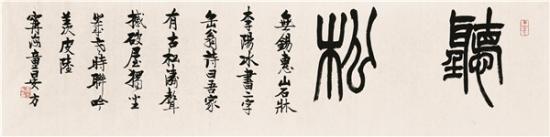 聽松
無錫惠山石牀
李陽冰書二字
缶翁詩曰吾家
有古松濤聲
撼破屋獨坐
時聯吟
羨皮陸
甯海童晏方